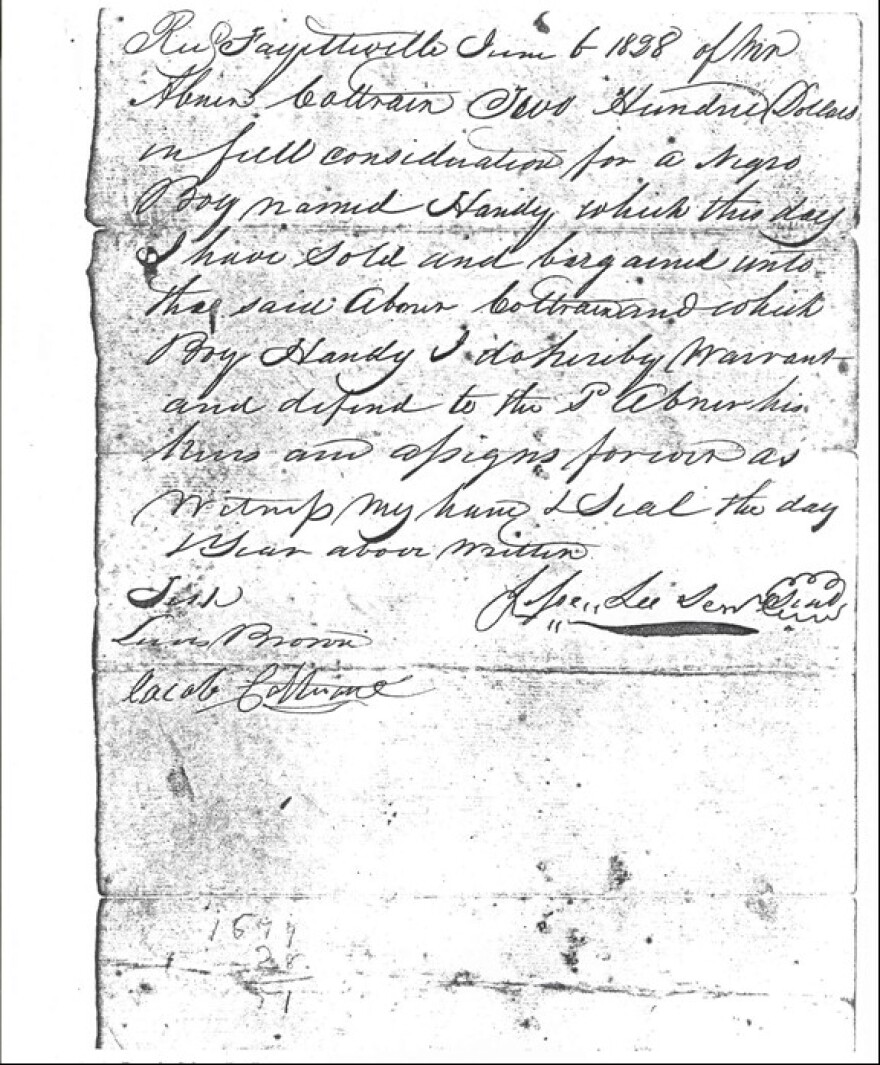 Recd Fayetteville June 6 1828 of Mr
Abner Coltrain Two Hundred Dollars
in full consideration for a Negro
Boy named Handy which this day
I have sold and bargained unto
the said Abner Coltrain and which
Boy Handy I do hereby Warrant
and defend to the S Abner his
heirs and assigns forever as
Witness My hand & Seal the day
& Year above Written
Test
Jesse Lee Senr Seal
Lewis Brown
Jacob Coltrane
28